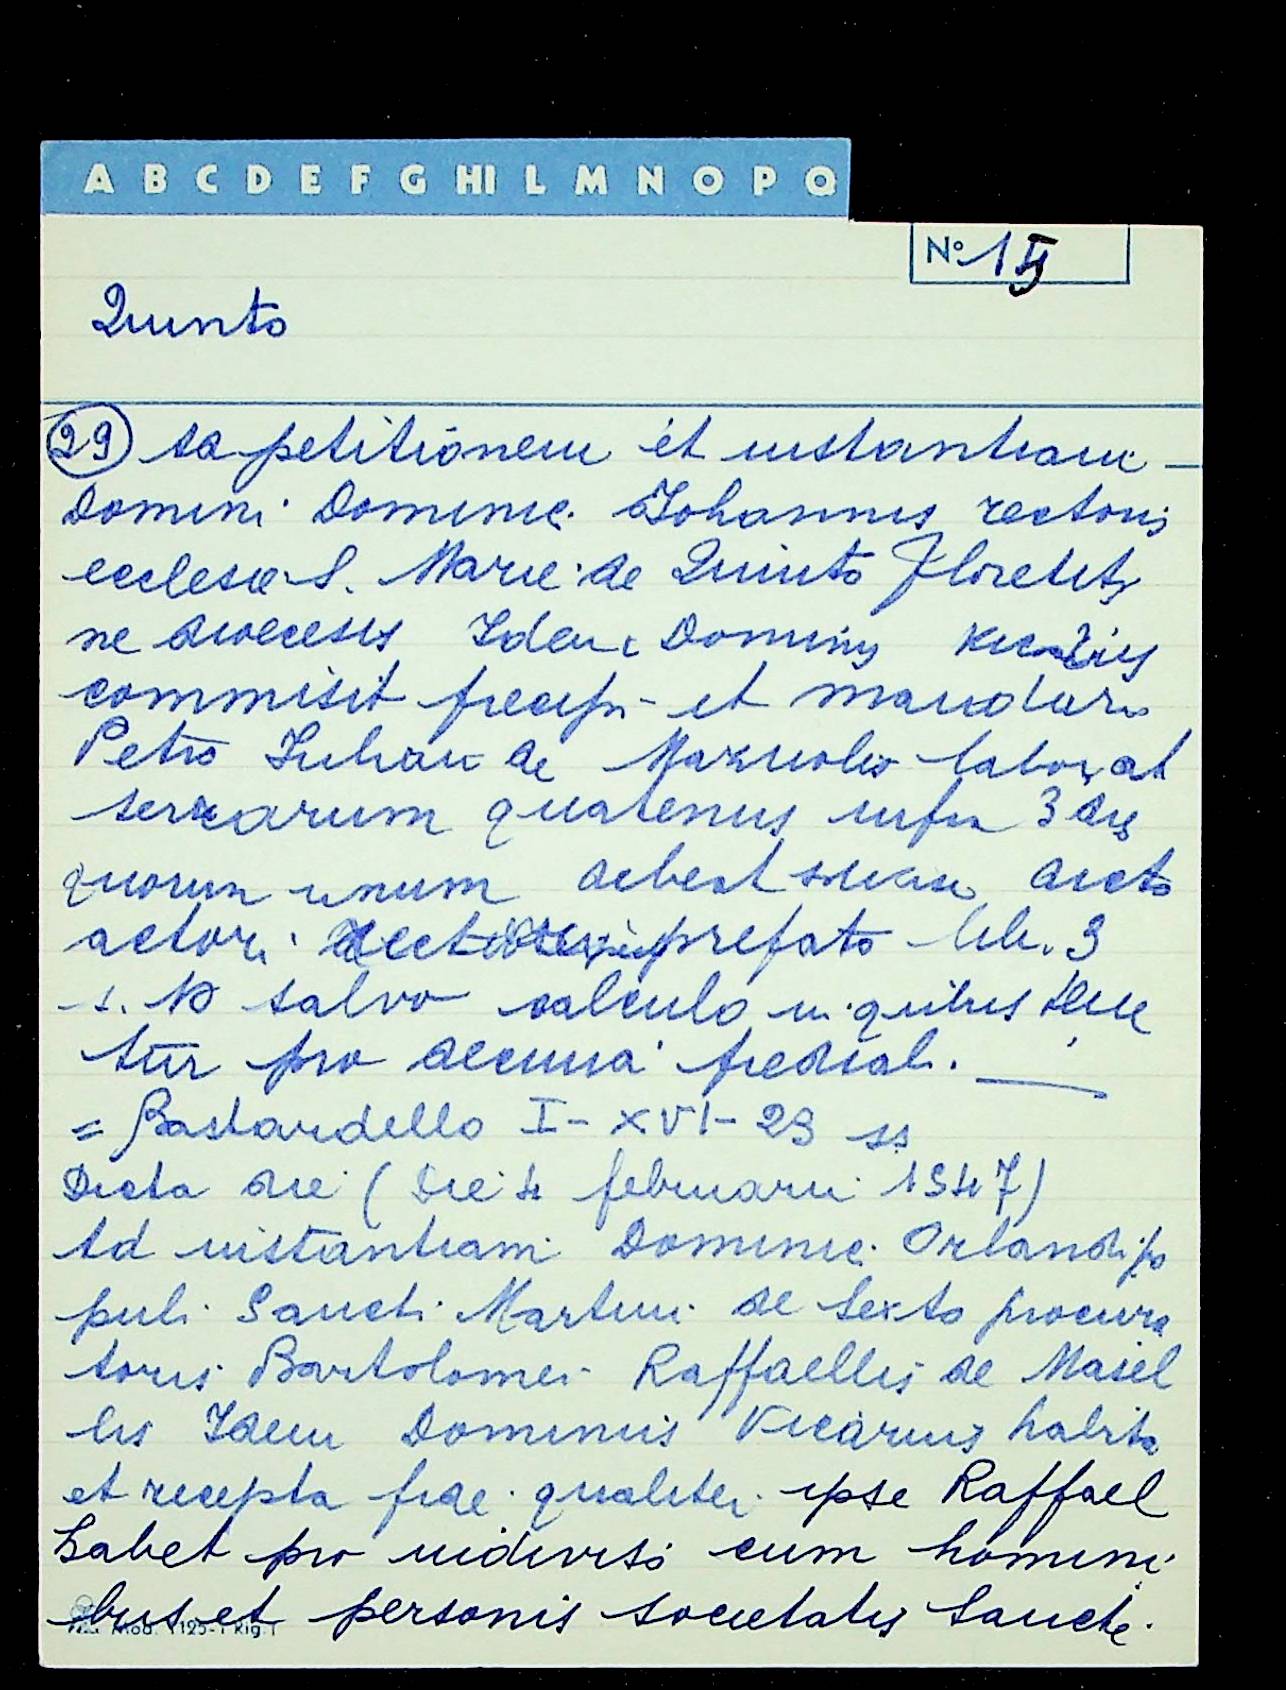 A B C D E F G HI L M N O P Q
Nº 15
Quinto
29 ad petitionem et instantiam
Domini Dominici Johannis rectoris
ecclesie S. Marie de Quinto Florenti
ne diocesis Idem Dominus
commisit precep. et mandavit
Petro Juliani de laborat
terrarum quatenus infra 3 dies
quorum unum debeat solvisse dicto
actori prefato lib. 3
s. 10 salvo calculo in quibus tene
tur pro decima predial.
= Bastardello I - XVI - 29 ss
Dicta die (Die 4 februarii 1547)
Ad instantiam Dominici Orlandi po
puli Sancti Martini de Sexto procura
toris Bartolomei Raffaellis de Masel
lis Idem Dominus Vicarius habita
et recepta fide qualiter ipse Raffael
habet pro indiviso cum homini
bus et personis societatis Sancte